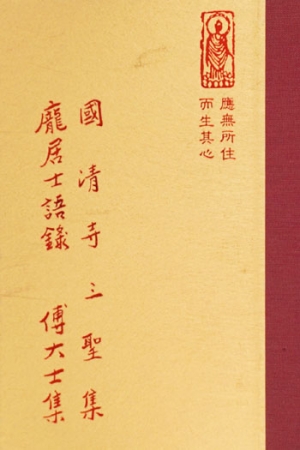 應無所住
而生其心
國清寺三聖集
龐居士語錄 傅大士集